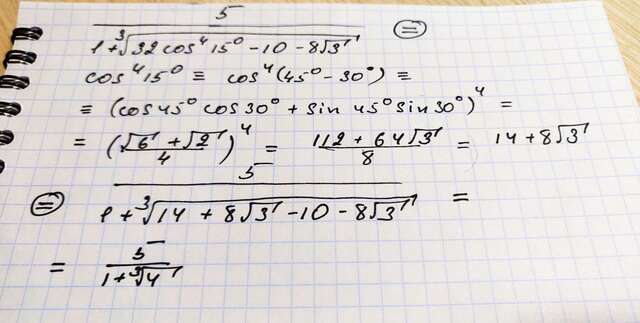 5/(1+∛(32cos⁴15°-10-8√3)) ⊜
cos⁴15° ≡ cos⁴(45°-30°) ≡
≡ (cos45°cos30° + sin45°sin30°)⁴ =
= ((√6+√2)/4)⁴ = (112+64√3)/8 = 14+8√3
⊜ 5/(1+∛(14+8√3-10-8√3)) =
= 5/(1+∛4)